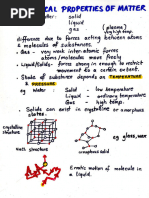 ICAL PROPERTIES OF MATTER
tter:
solid
liquid
gas
(plasma)
very high temp.
difference due to forces acting between atoms
& molecules of substances.
Gas - very weak inter-atomic forces
atoms/molecules move freely
Liquid/Solid - forces strong enough to restrict
movement to a certain extent.
State of substance depends on TEMPERATURE
& PRESSURE
eg Water
Solid - low temperature
Liquid - ordinary temperature
Gas - high temp.
Solids can exist in crystalline or amorphous
states.
crystalline
structure
eg glass, wax
vert. structure
amorphous solid
Erratic motion of molecule in
a liquid.